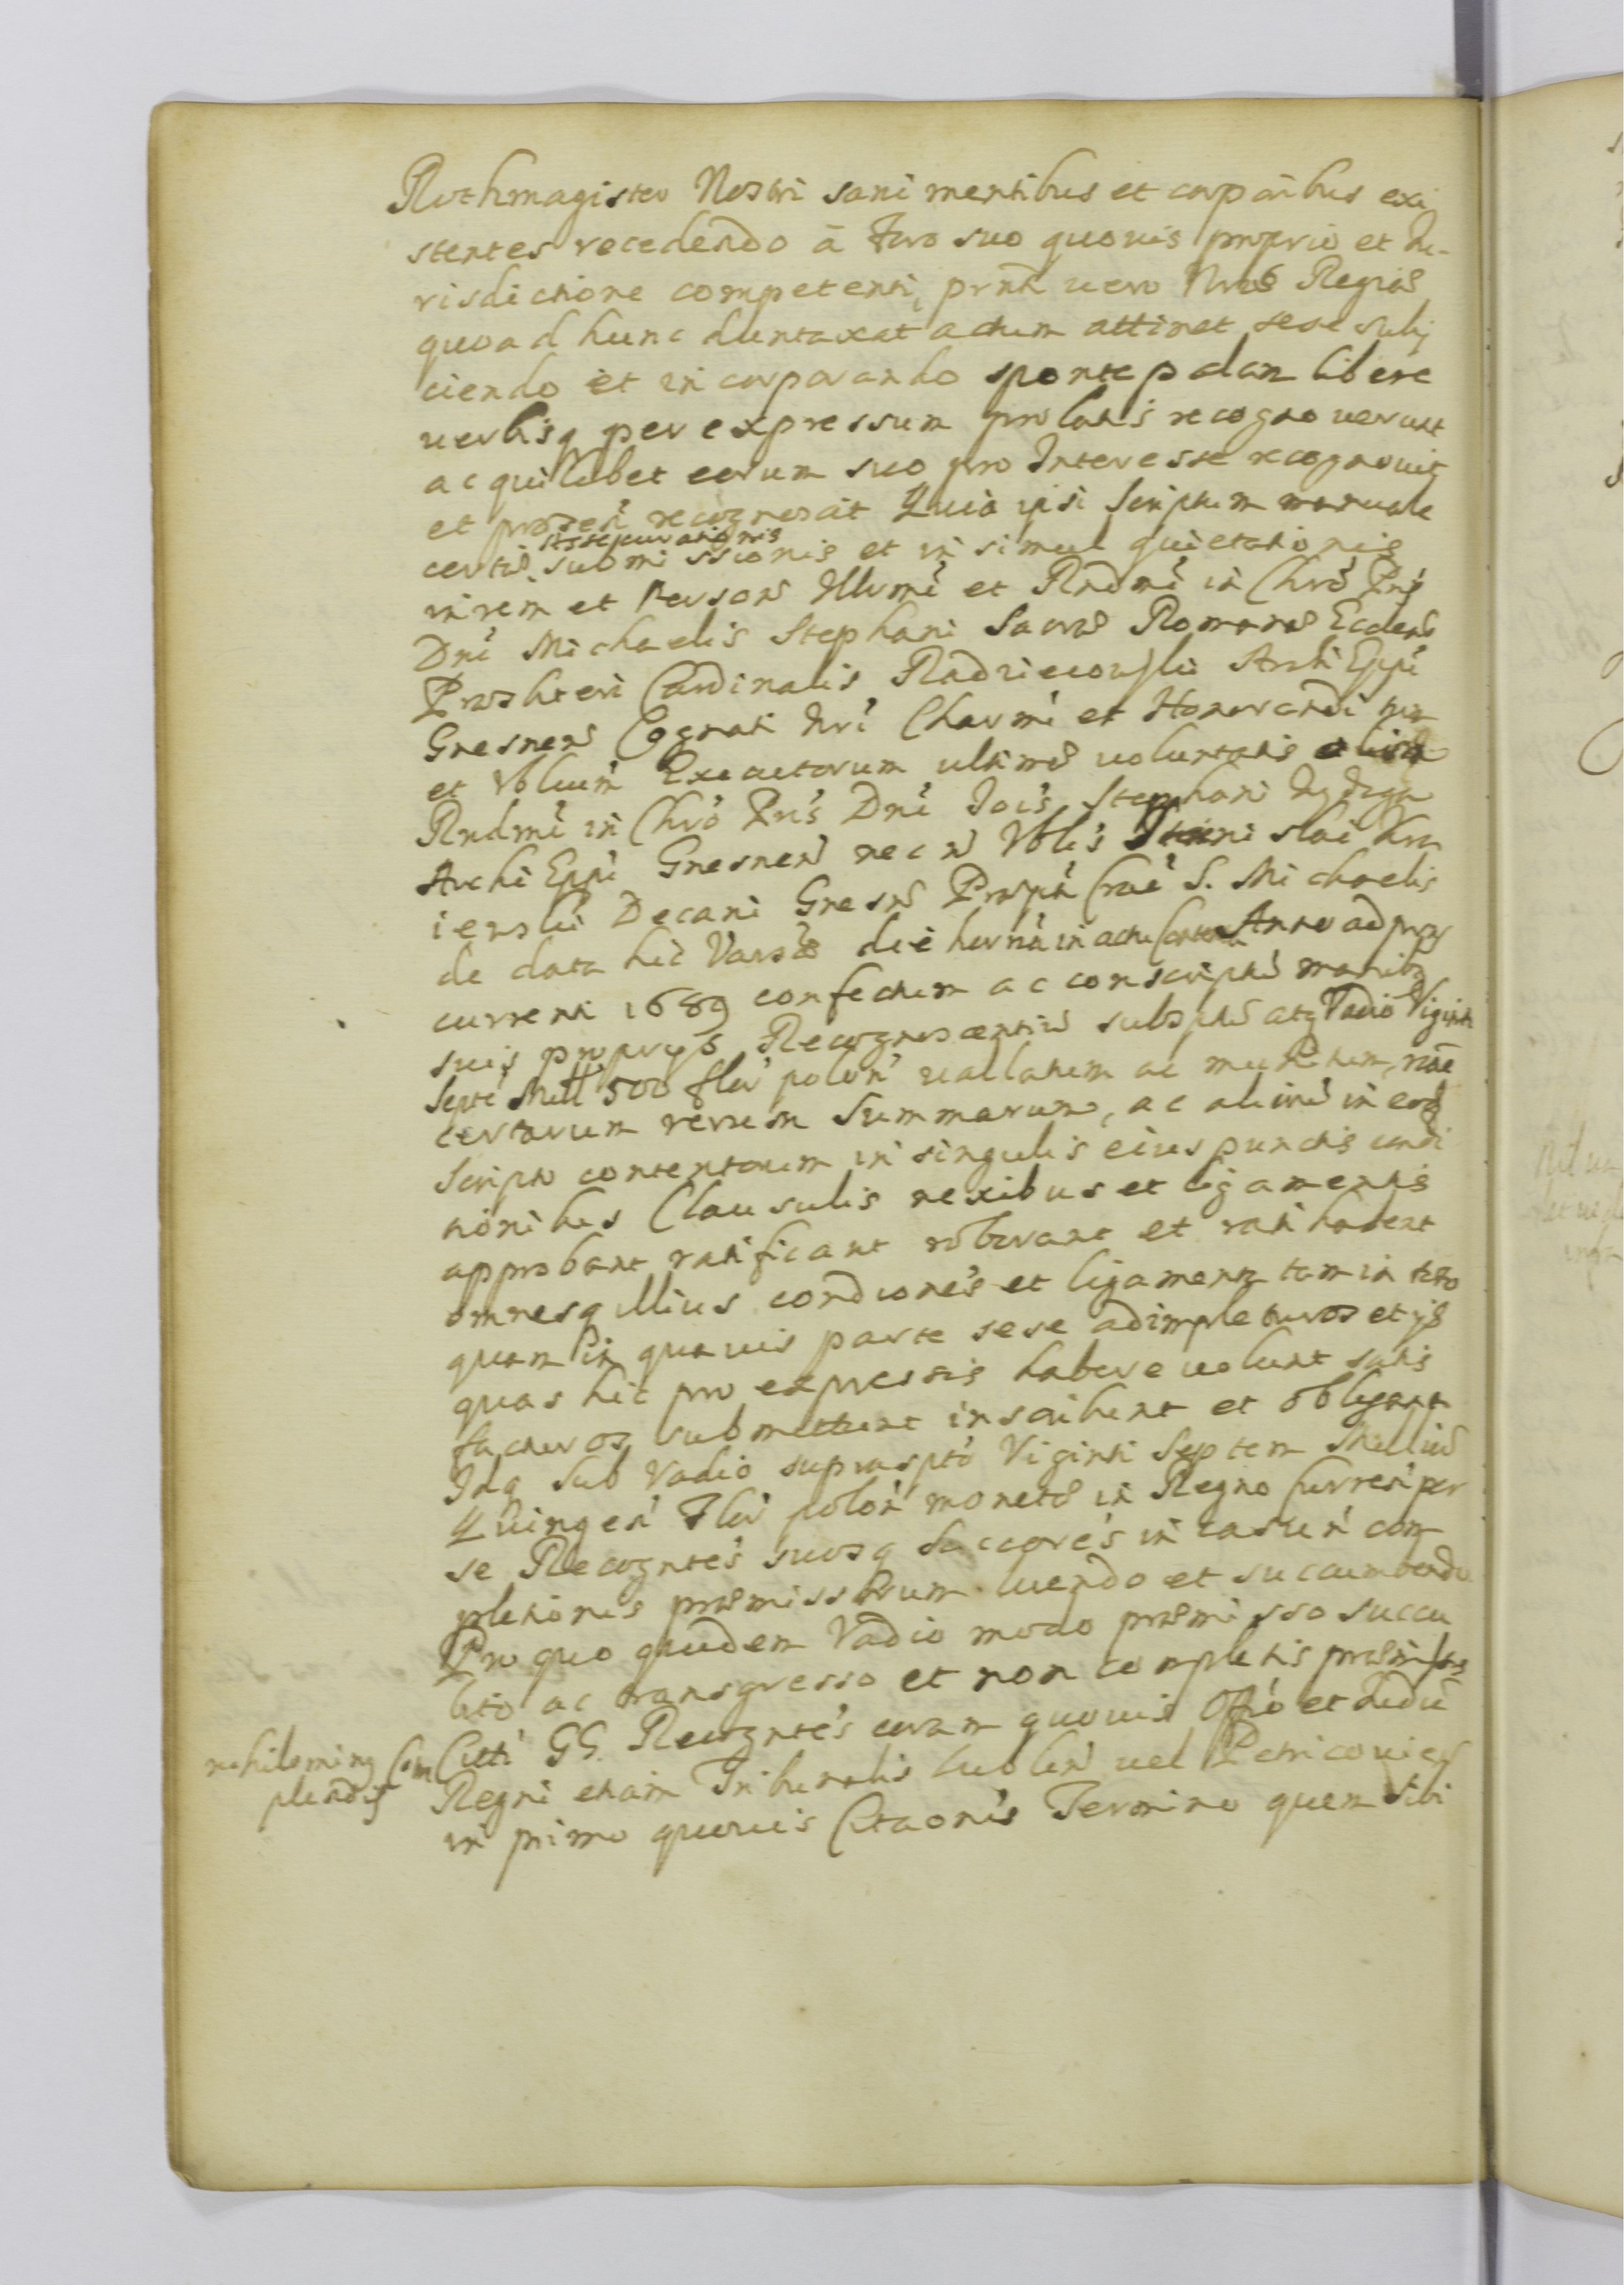 Rothmagister Nostri sani mentibus et corporibus exi
stentes recedendo à Foro suo quovis proprio et Iu-
risdictione competenti, prnti uero Nrae Regiae
quoad hunc duntaxat actum attinet sese subij
ciendo et incorporando sponte palam libere
uerbisq per expressum prolatis recognouerunt
ac quilibet eorum suo pro Interesse recognouit
et praesen recognoscit Quia ipsi Scriptum manuale
Assecurationis
certae submissionis et in simul quietationis
in rem et Person Illumi et Rndmi in Chro Pris
Dni Michaelis Stephani Sacrae Romanae Eccles
Praesbiteri Cardinalis Radzieiouskii Archi Eppi
Gnesnen Cognati Nri Charmi et Honorandi
et Vblium Executorum ultimae uoluntatis olim
Rndmi in Chro Pris Dni Jois Stephani Wydzga
Archi Eppi Gnesnen nec n Vblis Stanislai
ienskii Decani Gnesn Praepti S. Michaelis
de data hic Varsae die herna in actu Anno ad praes
currenti 1689 confectum ac conscriptu manibq
suis proprys Recognoscentiu subsptu atq Vadio Viginti
Septe Mill 500 flor polon uallatum ac munitum, rōne
certarum rerum Summarum, ac aliorū in eodq
Scripto contentorum in singulis eius punctis condi
tionibus Clausulis nexibus et ligamentis
approbant ratificant roborant et ratihabent
omnesq illius condiones et ligamenta tam in toto
quam in quauis parte sese adimpleturos et ijs
quas hic pro expressis habere uolunt satis
facturos submittunt inscribunt et obligant
Idq sub Vadio suprasptō Viginti Septem Milliū
Quingen Flor polon monetae in Regno Curren per
se Recogntes suosq Succores in casu n com
pletionis praemissorum luendo et succumbendo
Pro quo quidem Vadio modo praemisso succu
bito ac transgresso et non completis praemissis
nihilominq Com
plendis
Citti GG. Recogntes coram quouis Offio et Iudiū
Regni etiam Tribunalis Lublin uel Petricouien
in primo quouis Citaonis Termino quem sibi